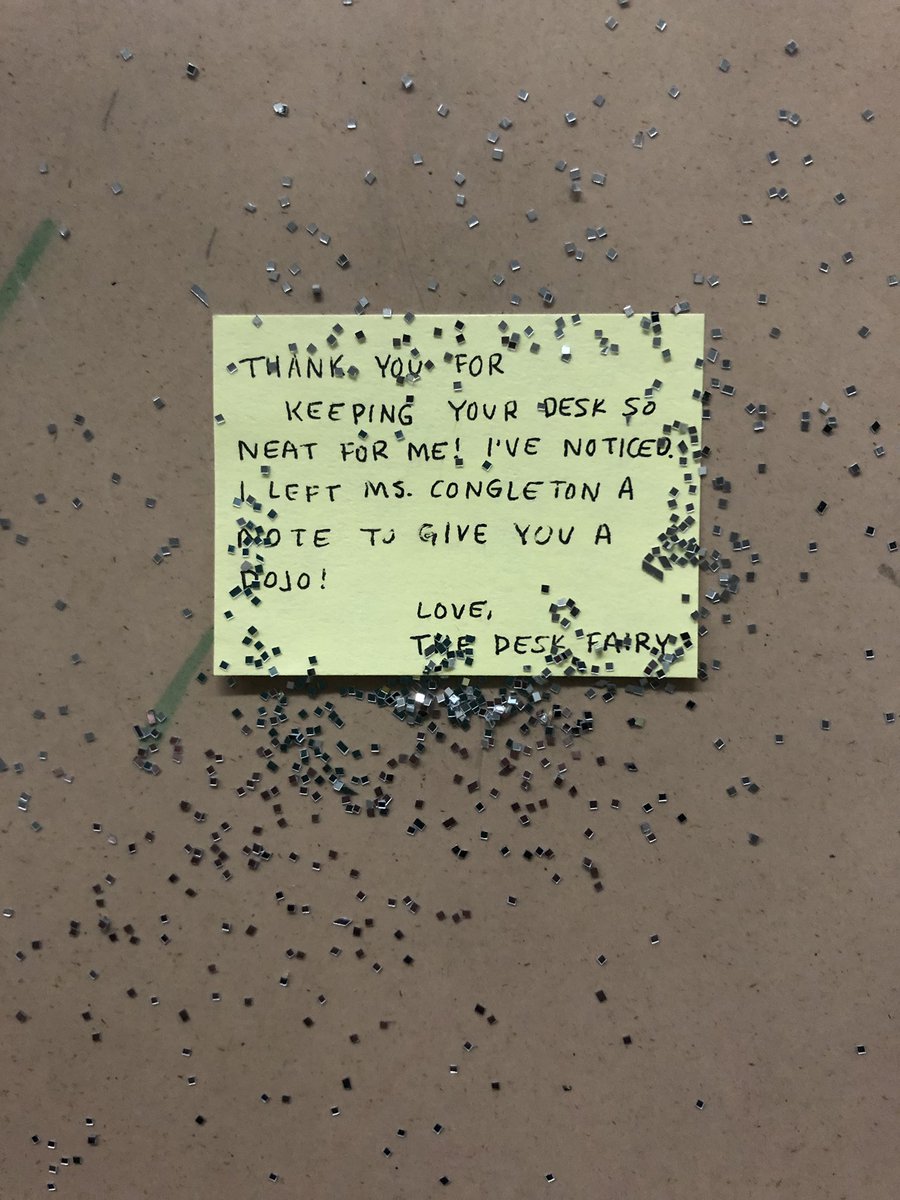 THANK YOU FOR
KEEPING YOUR DESK SO
NEAT FOR ME! I'VE NOTICED.
I LEFT MS. CONGLETON A
NOTE TO GIVE YOU A
DOJO!
LOVE,
THE DESK FAIRY